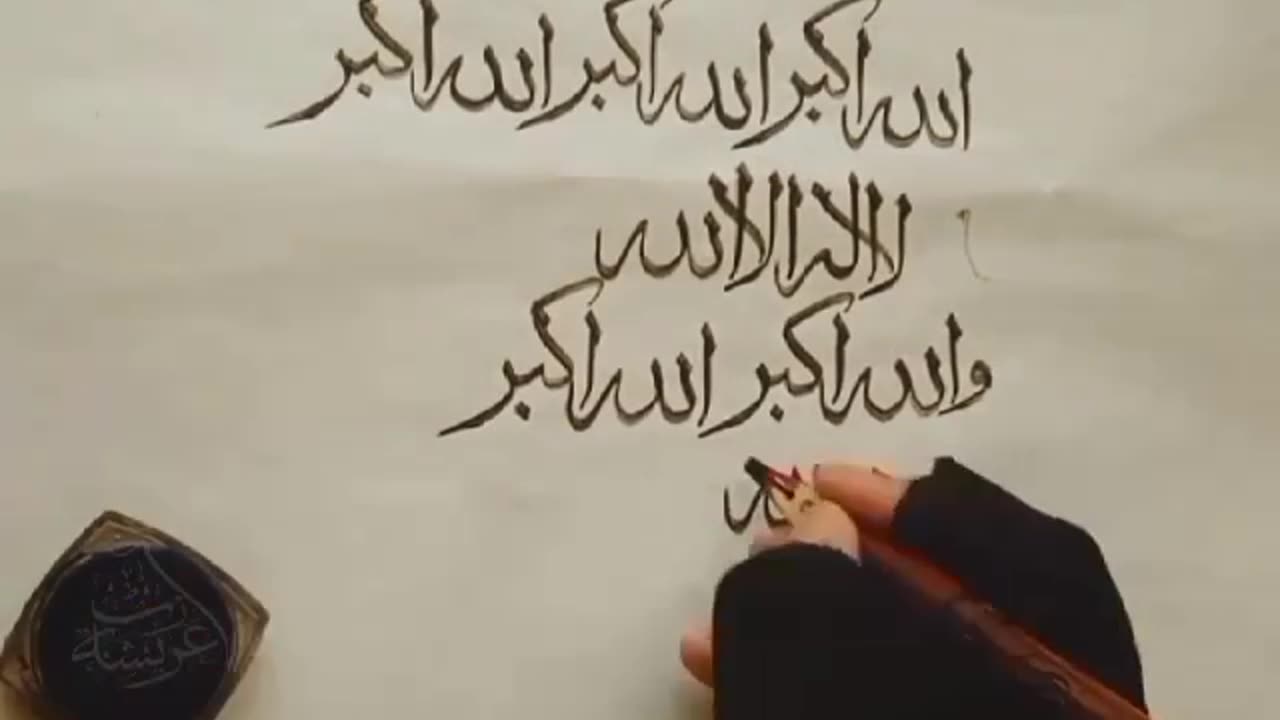 الله اكبر الله اكبر الله اكبر
لا اله الا الله
والله اكبر الله اكبر